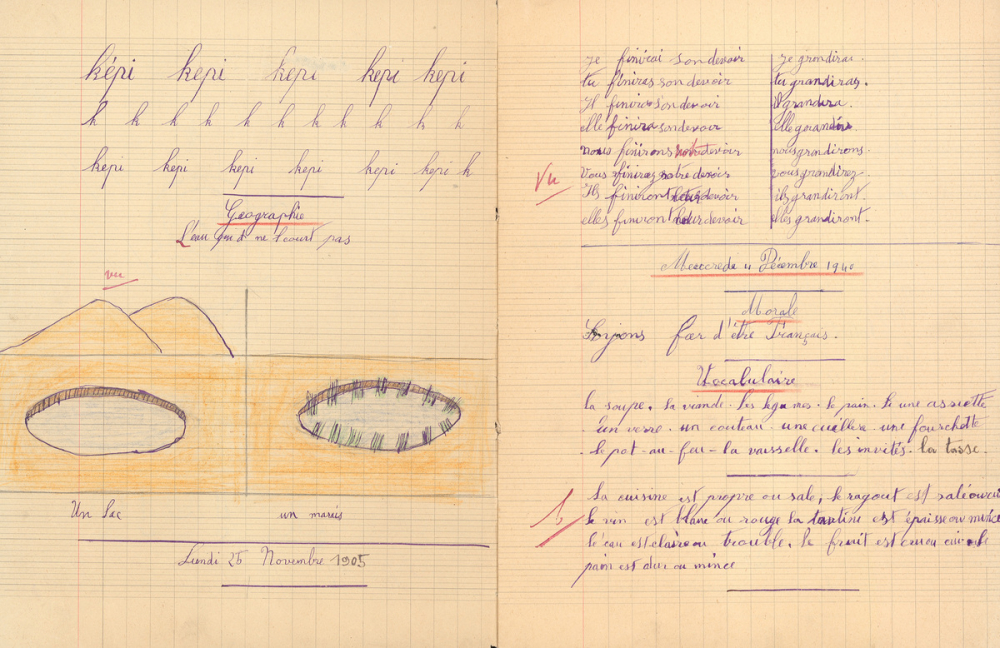 képi kepi kepi kepi kepi
h h h h h h h h h h h
képi kepi kepi kepi kepi kepi h
Géographie
L'eau qui ne court pas
vu
Un lac un marais
Lundi 25 Novembre 1905
Je finirai son devoir Je grandirai
tu finiras son devoir tu grandiras.
Il finira son devoir Il grandira.
elle finira son devoir elle grandira
nous finirons notre devoir nous grandirons.
Vu Vous finirez notre devoir vous grandirez.
Ils finiront leur devoir ils grandiront.
elles finiront leur devoir elles grandiront.
Mercredi 4 Décembre 1940
Morale
Soyons fier d'être Français.
Vocabulaire
la soupe. la viande. les légumes. le pain. une assiette
. un verre. un couteau. une cuillère. une fourchette
. le pot-au-feu-la vaisselle. les invités. la tasse.
La cuisine est propre ou sale, le ragout est salé ou
le vin est blanc ou rouge la tartine est épaisse ou mince
l'eau est claire ou trouble. le fruit est cru ou cuit le
pain est dur ou mince